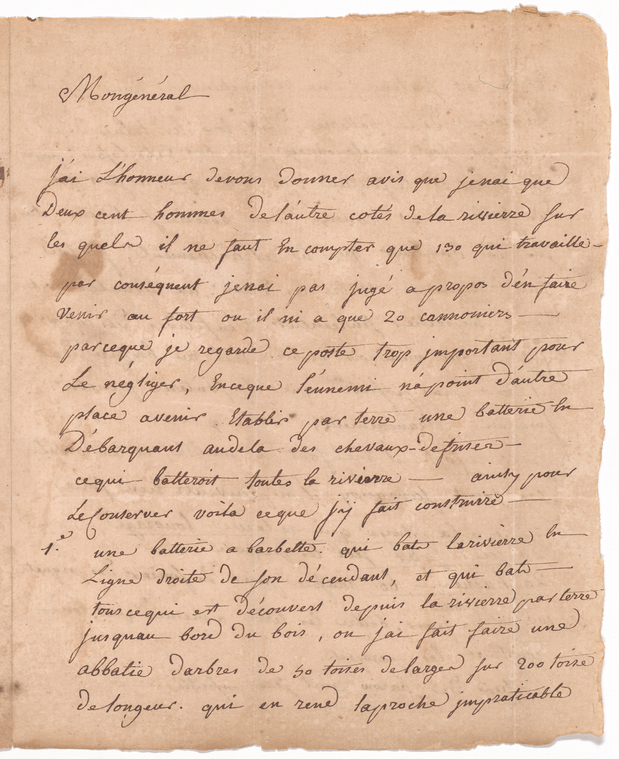 Mongénéral
j'ai L'honneur devous donner avis que jenai que
Deux cent hommes del'autre cotés dela rivierre sur
les quels il ne faut En compter que 130 qui travaille-
par conséquent jenai pas jugé apropos d'en faire
venir au fort ou il ni a que 20 cannoniers —
parceque je regarde ceposte trop important pour
Le négliger, Enceque l'ennemi n'apoint d'autre
place avenir Etablir par terre une batterie En
Débarquant audela des chevaux-defrise —
cequi batteroit toutes la rivierre — ainsy pour
LeConserver voila ceque j'ÿ fait construire —
1.e une batterie a barbette. qui bate larivierre En
Ligne droite de son décendant, et qui bate —
touscequi est découvert depuis la rivierre par terre
jusquau bord du bois, ou j'ai fait faire une
abbatie d'arbres de 50 toises delarger sur 200 toise
delongeur. qui en rend laproche impraticable